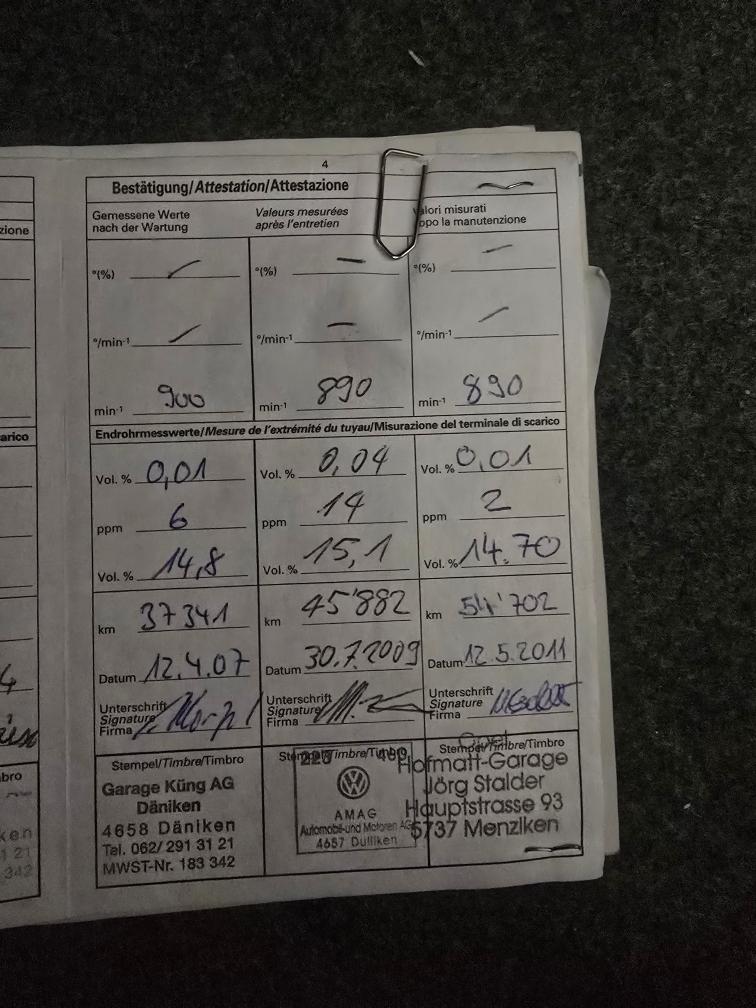 4
Bestätigung/Attestation/Attestazione
Gemessene Werte
nach der Wartung
Valeurs mesurées
après l'entretien
alori misurati
opo la manutenzione
°(%)
°(%)
°(%)
°/min-1
°/min-1
°/min-1
min-1 900
min-1 890
min-1 890
Endrohrmesswerte/Mesure de l'extrémité du tuyau/Misurazione del terminale di scarico
Vol. % 0,01
Vol. % 0,04
Vol. % 0.01
ppm 6
ppm 14
ppm 2
Vol. % 14,8
Vol. % 15,1
Vol. % 14.70
km 37341
km 45'882
km 54'702
Datum 12.4.07
Datum 30.7.2009
Datum 12.5.2011
Unterschrift
Signature
Firma
Unterschrift
Signature
Firma
Unterschrift
Signature
Firma
Stempel/Timbre/Timbro
Garage Küng AG
Däniken
4658 Däniken
Tel. 062/ 291 31 21
MWST-Nr. 183 342
Stempel/Timbre/Timbro
AMAG
Automobil-und Motoren AG
4657 Dulliken
Stempel/Timbre/Timbro
Opel
Hofmatt-Garage
Jörg Stalder
Hauptstrasse 93
5737 Menziken
zione
arico
4
bro
ken
1 21
342